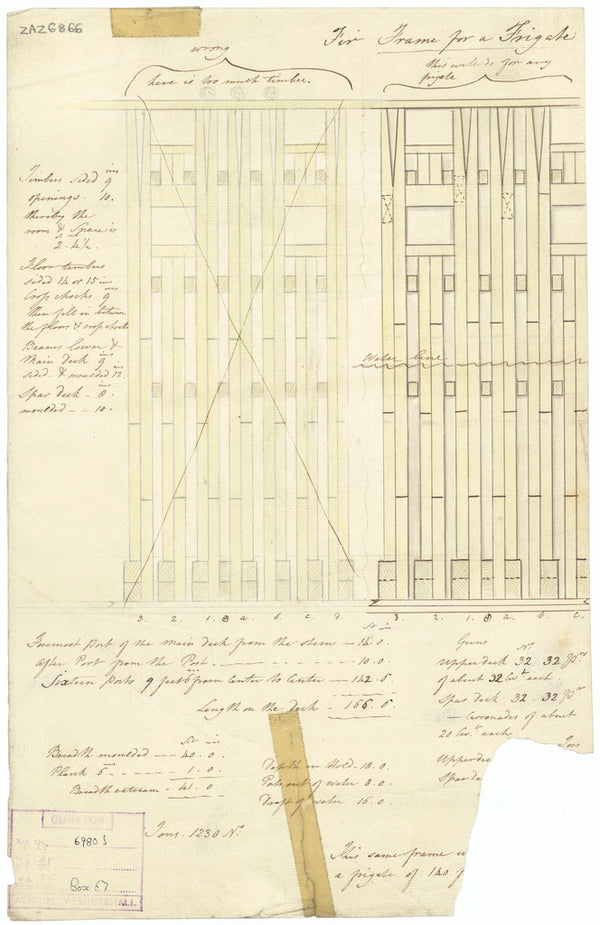 ZAZ6866
Fir Frame for a Frigate
wrong
here is too much timber.
this will do for any
frigate
Timbers sided 9 ins
openings - 10.
thereby the
room & Space is
2. 4½.
Floor timbers
sided 14 or 15 ins
Crop chocks 9 ins
then fill in between
the floors & crop chocks
Beams lower &
Main deck 9 ins
sided. & moulded 12
Spar deck - 8 ins
moulded - - 10.
Water line
3. 2. 1. ⊕ a. b. c. d.
3. 2. 1. ⊕ a. b. c.
Ft ins
Foremost Port of the main deck from the stem - 14. 0
After Port from the Post - - - - - - 10. 0
Sixteen ports 9 feet 6 ins from Center to Center - 142. 6
Length on the deck - 166. 6.
Guns
No.
Upper deck 32 32 Pdrs
of about 32 Cwt each.
Spar deck 32. 32 Pdrs
- Carronades of about
20 Cwt each
Tons
Upper de
Spar de
Ft ins
Breadth moulded - - 40. 0
Plank 6 ins - - - 1. 0.
Breadth extream - 41. 0
Depth in Hold. 18. 0.
Ports out of water 8. 0.
Draft of water 16. 0.
Tons. 1230 No.
This same frame w
a frigate of 140 f
CURATOR
Reg. No.
6980 J
Box 57
ADMIRALTY WHITEHALL